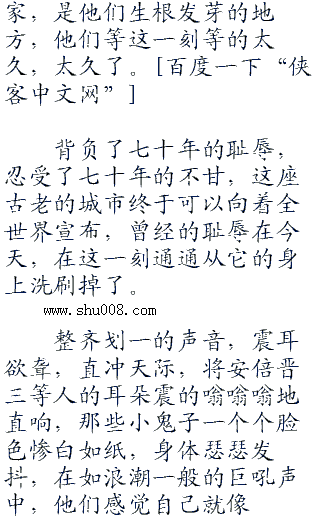 家，是他们生根发芽的地
方，他们等这一刻等的太
久，太久了。[百度一下“侠
客中文网”]
背负了七十年的耻辱，
忍受了七十年的不甘，这座
古老的城市终于可以向着全
世界宣布，曾经的耻辱在今
天，在这一刻通通从它的身
上洗刷掉了。
www.shu008.com
整齐划一的声音，震耳
欲聋，直冲天际，将安倍晋
三等人的耳朵震的嗡嗡嗡地
直响，那些小鬼子一个个脸
色惨白如纸，身体瑟瑟发
抖，在如浪潮一般的巨吼声
中，他们感觉自己就像